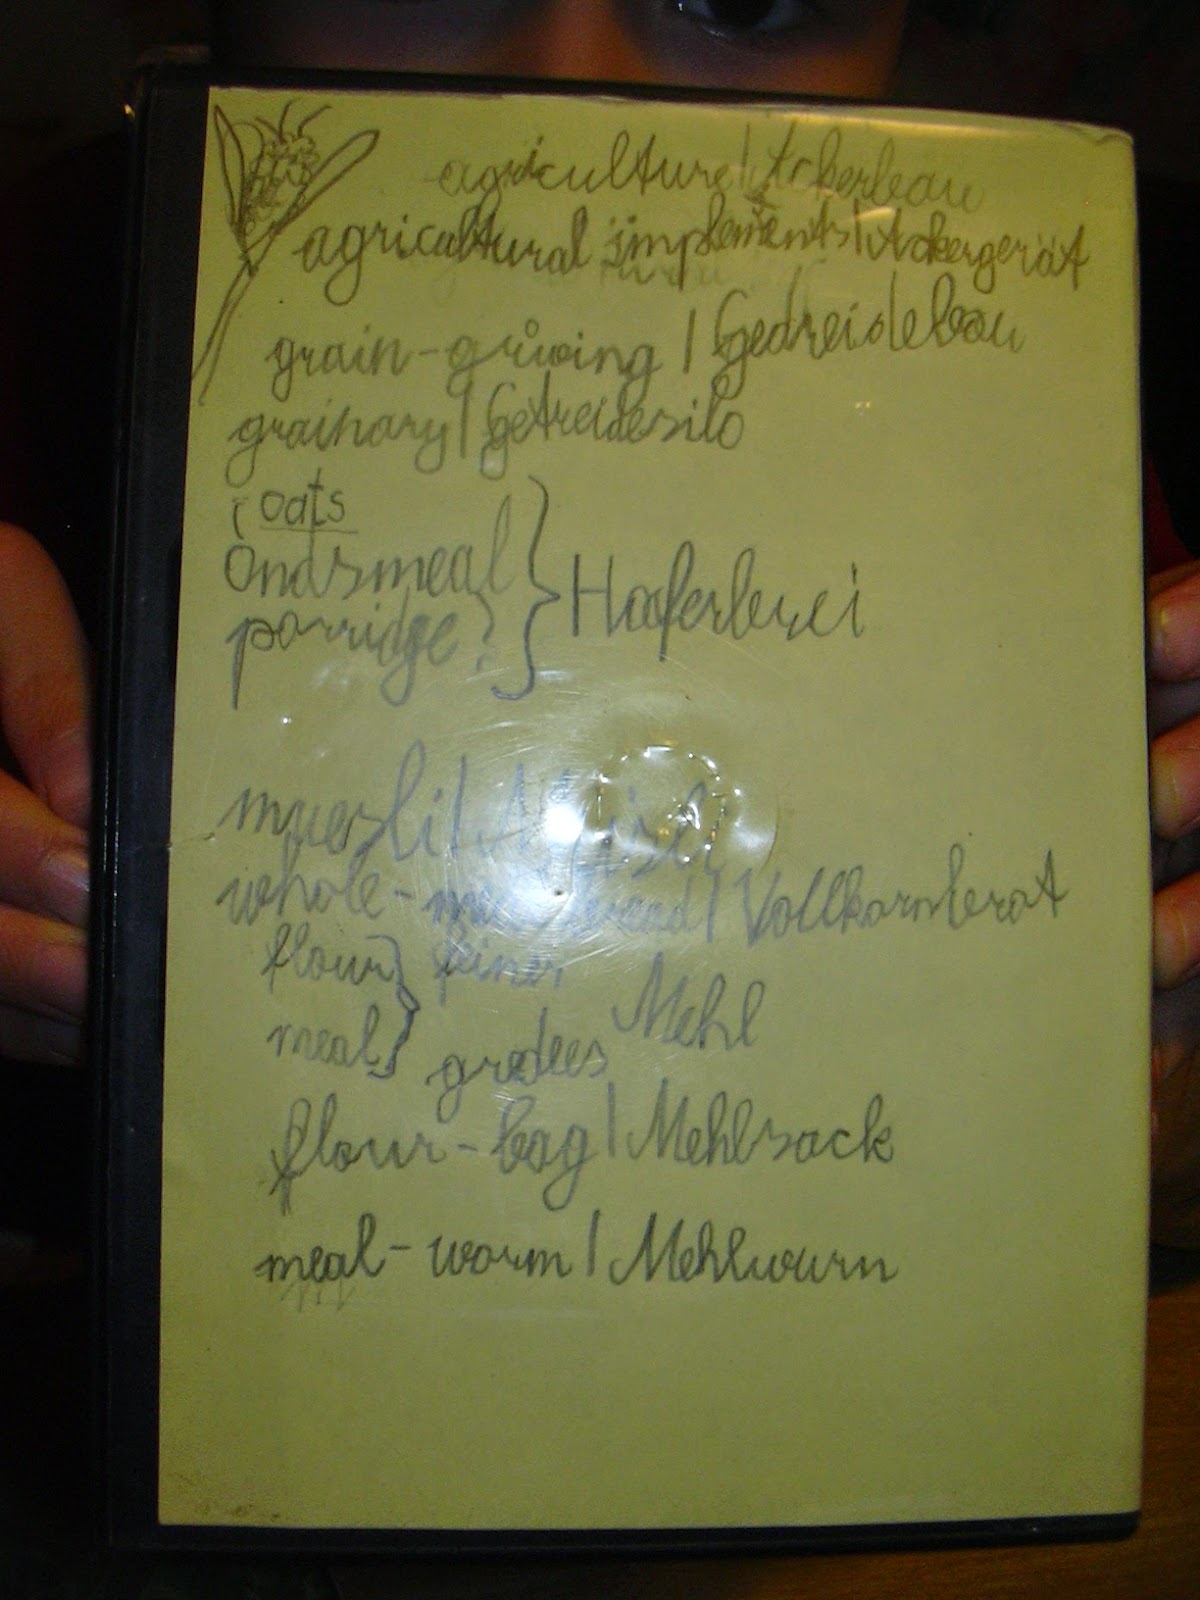 agriculture | Ackerbau
agricultural implements | Ackergerät
grain-growing | Gedreidebau
grainary | Getreidesilo
oats
meal
porridge? } Haferbrei
muesli |
whole- bread | Vollkornbrot
flour } finer
Mehl
meal }
flour-bag | Mehlsack
meal-worm | Mehlwurm